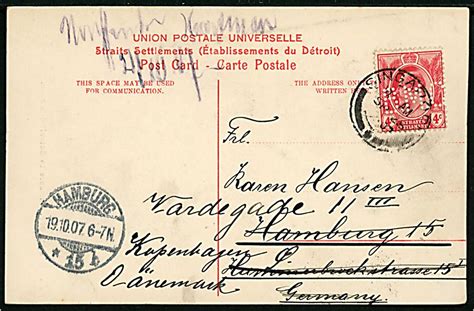 UNION POSTALE UNIVERSELLE
Straits Settlements (Établissements du Détroit)
Post Card - Carte Postale
THIS SPACE MAY BE USED
FOR COMMUNICATION
THE ADDRESS ON
WRITTEN
SINGAPORE
4c
STRAITS
SETTLEMENTS
4c
Frl.
Karen Hansen
Vardegade 11 III
Hamburg 15
Kopenhagen
Dänemark
Germany
HAMBURG
19.10.07. 6-7N.
* 15 b